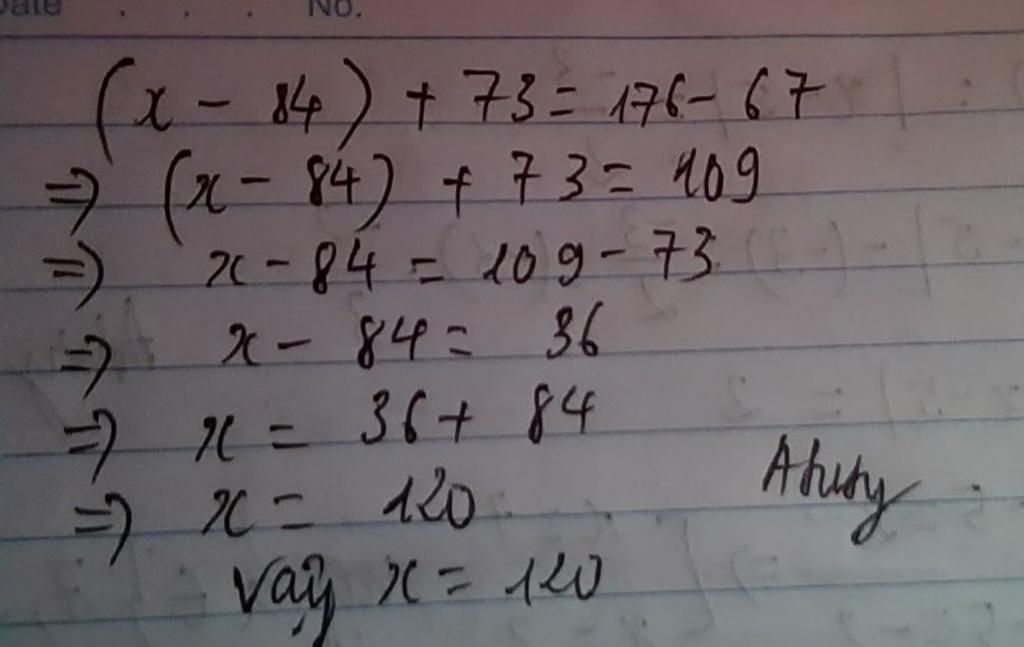 Date . . . No.
(x - 84) + 73 = 176 - 67
=> (x - 84) + 73 = 109
=> x - 84 = 109 - 73
=> x - 84 = 36
=> x = 36 + 84
=> x = 120
Vậy x = 120